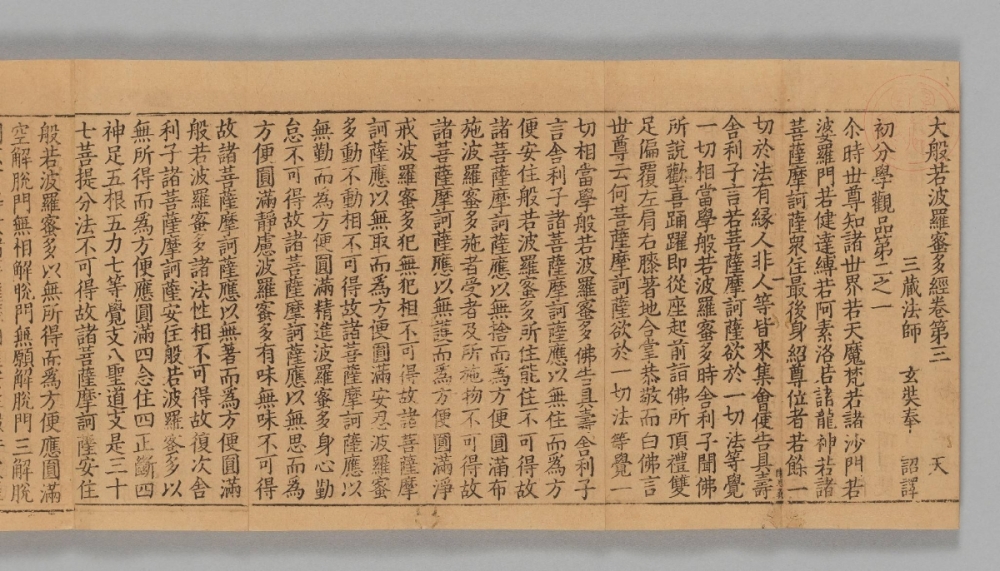 大般若波羅蜜多經卷第三 天
三藏法師 玄奘奉 詔譯
初分學觀品第二之一
尒時世尊知諸世界若天魔梵若諸沙門若
婆羅門若健達縛若阿素洛若諸龍神若諸
菩薩摩訶薩衆住最後身紹尊位者若餘一
切於法有縁人非人等皆來集會便告具壽
舍利子言若菩薩摩訶薩欲於一切法等覺
一切相當學般若波羅蜜多時舍利子聞佛
所說歡喜踊躍即從座起前詣佛所頂禮雙
足偏覆左肩右膝著地合掌恭敬而白佛言
世尊云何菩薩摩訶薩欲於一切法等覺
切相當學般若波羅蜜多佛告具壽舍利子
言舍利子諸菩薩摩訶薩應以無住而爲方
便安住般若波羅蜜多所住能住不可得故
諸菩薩摩訶薩應以無捨而爲方便圓滿布
施波羅蜜多施者受者及所施物不可得故
諸菩薩摩訶薩應以無護而爲方便圓滿淨
戒波羅蜜多犯無犯相不可得故諸菩薩摩
訶薩應以無取而爲方便圓滿安忍波羅蜜
多動不動相不可得故諸菩薩摩訶薩應以
無勤而爲方便圓滿精進波羅蜜多身心勤
怠不可得故諸菩薩摩訶薩應以無思而爲
方便圓滿靜慮波羅蜜多有味無味不可得
故諸菩薩摩訶薩應以無著而爲方便圓滿
般若波羅蜜多諸法性相不可得故復次舍
利子諸菩薩摩訶薩安住般若波羅蜜多以
無所得而爲方便應圓滿四念住四正斷四
神足五根五力七等覺支八聖道支是三十
七菩提分法不可得故諸菩薩摩訶薩安住
般若波羅蜜多以無所得而爲方便應圓滿
空解脫門無相解脫門無願解脫門三解脫